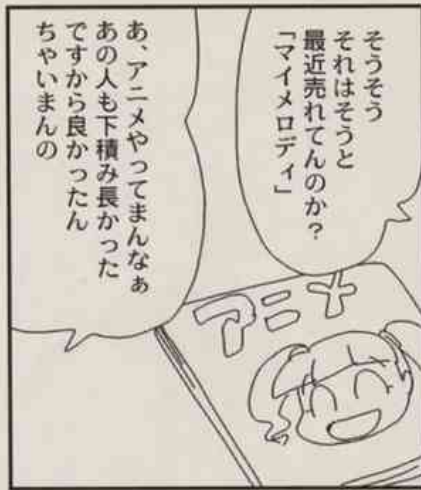 そうそう
それはそうと
最近売れてんのか？
「マイメロディ」
あ、アニメやってまんなぁ
あの人も下積み長かった
ですから良かったん
ちゃいまんの
アニメ